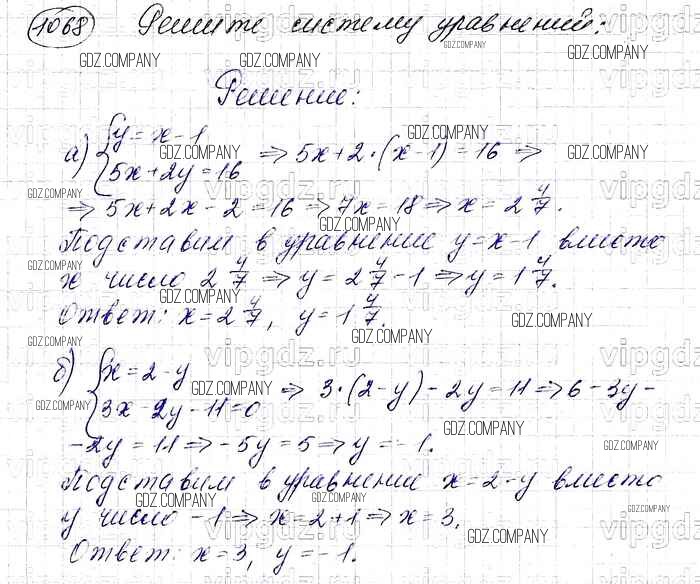 1068 Решите систему уравнений:
Решение:
а) { y = x - 1
5x + 2y = 16 ⇒ 5x + 2 · (x - 1) = 16 ⇒
⇒ 5x + 2x - 2 = 16 ⇒ 7x = 18 ⇒ x = 2 4/7.
Подставим в уравнение y = x - 1 вместо
x число 2 4/7 ⇒ y = 2 4/7 - 1 ⇒ y = 1 4/7.
Ответ: x = 2 4/7, y = 1 4/7.
б) { x = 2 - y
3x - 2y - 11 = 0 ⇒ 3 · (2 - y) - 2y = 11 ⇒ 6 - 3y -
- 2y = 11 ⇒ - 5y = 5 ⇒ y = - 1.
Подставим в уравнение x = 2 - y вместо
y число - 1 ⇒ x = 2 + 1 ⇒ x = 3,
Ответ: x = 3, y = - 1.
GDZ.COMPANY
vipgdz.ru